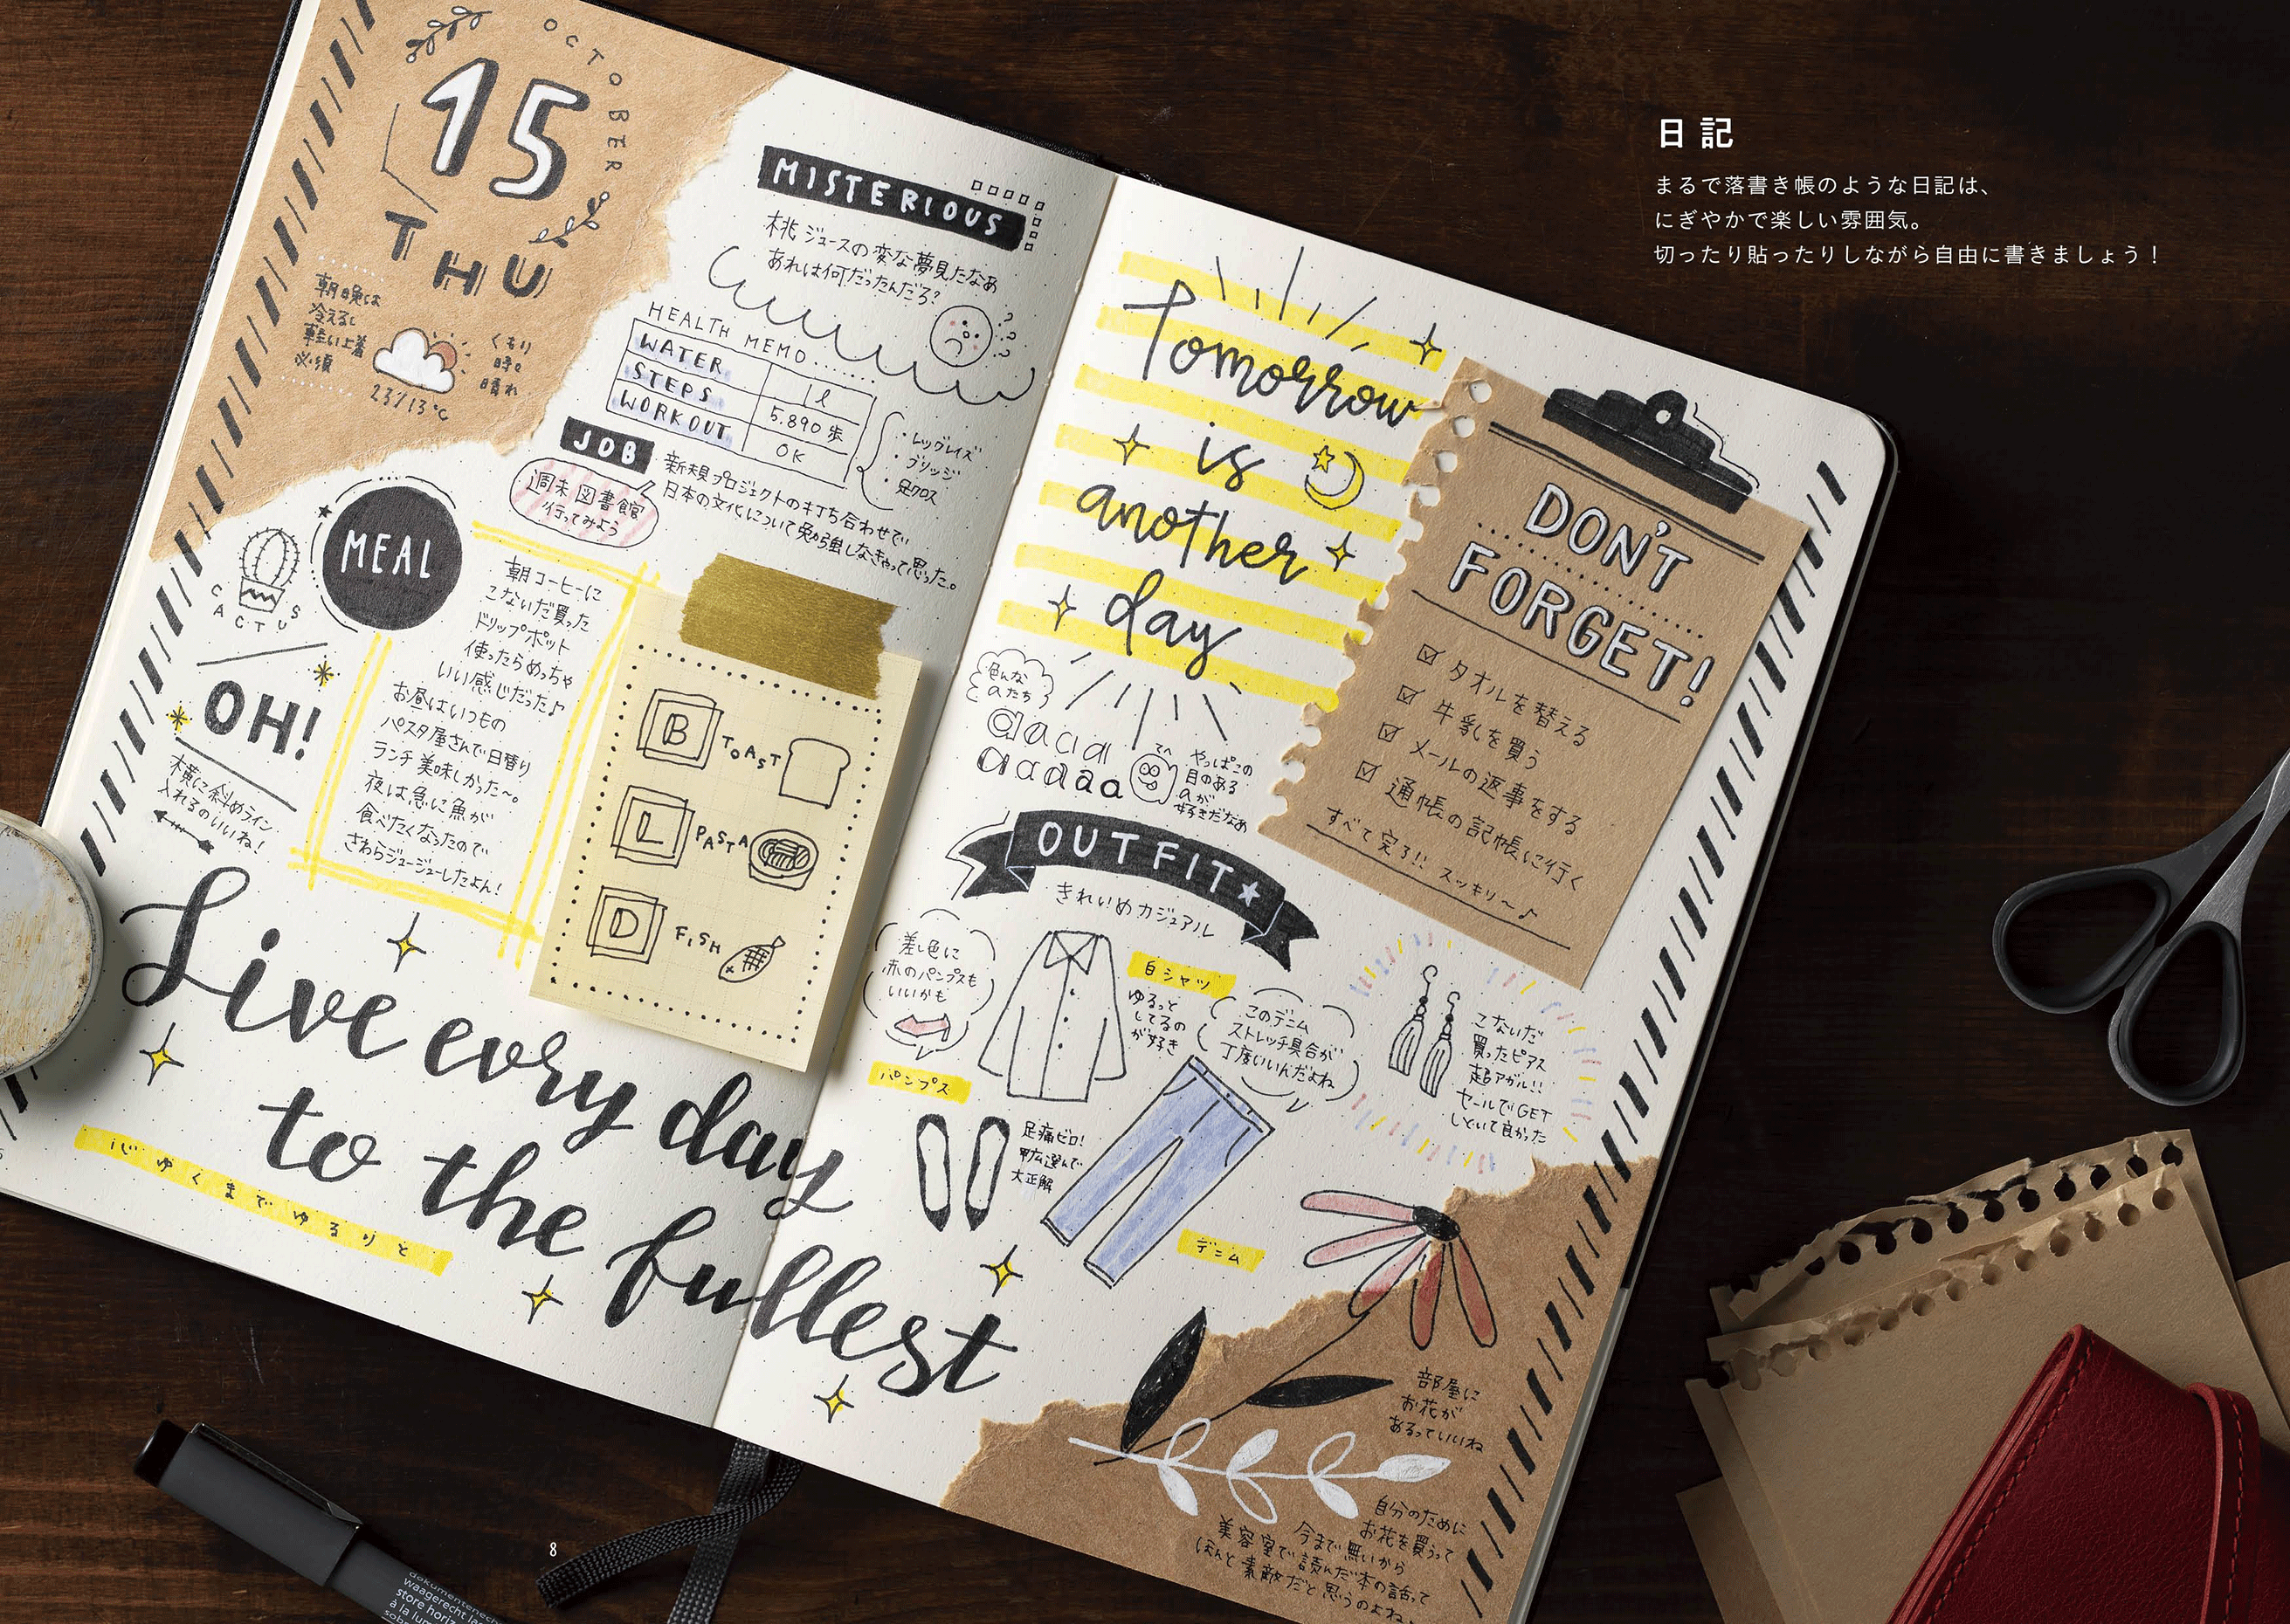 日記
まるで落書き帳のような日記は、
にぎやかで楽しい雰囲気。
切ったり貼ったりしながら自由に書きましょう！
OCTOBER
15
THU
朝晩は
冷えるし
軽い上着
必須
くもり
時々
晴れ
23/13℃
MISTERIOUS
桃ジュースの変な夢見たなあ
あれは何だったんだろ?
???
HEALTH MEMO
WATER 1ℓ
STEPS 5.890歩
WORKOUT OK
・レッグレイズ
・ブリッジ
・足クロス
JOB
新規プロジェクトの打ち合わせで
日本の文化について勉強しなきゃって思った。
週末図書館
行ってみよう
CACTUS
MEAL
朝コーヒーに
こないだ買った
ドリップポット
使ったらめっちゃ
いい感じだった♪
お昼はいつもの
パスタ屋さんで日替り
ランチ美味しかった〜。
夜は急に魚が
食べたくなったので
さわらジュージューしたよん!
OH!
横に斜めライン
入れるのいいね!
B TOAST
L PASTA
D FISH
Live evry day
to the fullest
心ゆくまでゆるりと
Tomorrow
is
another
day
色んな
aたち
aaaa
aaaaa
てへ
やっぱこの
目のある
aが
好きだなぁ
DON'T
FORGET!
☑ タオルを替える
☑ 牛乳を買う
☑ メールの返事をする
☑ 通帳の記帳に行く
すべて完了!! スッキリ〜♪
OUTFIT
きれいめカジュアル
差し色に
赤のパンプスも
いいかも
白シャツ
ゆるっと
してるの
が好き
このデニム
ストレッチ具合が
丁度いいんだよね
パンプス
足痛ゼロ!
甲広選んで
大正解
デニム
こないだ
買ったピアス
超アガル!!
セールでGET
しといて良かった
部屋に
お花が
あるっていいね
自分のために
お花を買うって
今まで無いから
美容室で読んだ本の話って
ほんと素敵だと思うのよね
8
dokumentenec
waagerecht la
store horiz
à la lum